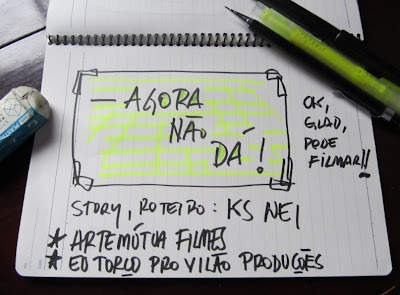 — AGORA
NÃO
DÁ!
OK,
GLAD,
PODE
FILMAR!!
STORY, ROTEIRO: KS NEI
★ ARTEMÚTUA FILMES
★ EU TORÇO PRO VILÃO PRODUÇÕES